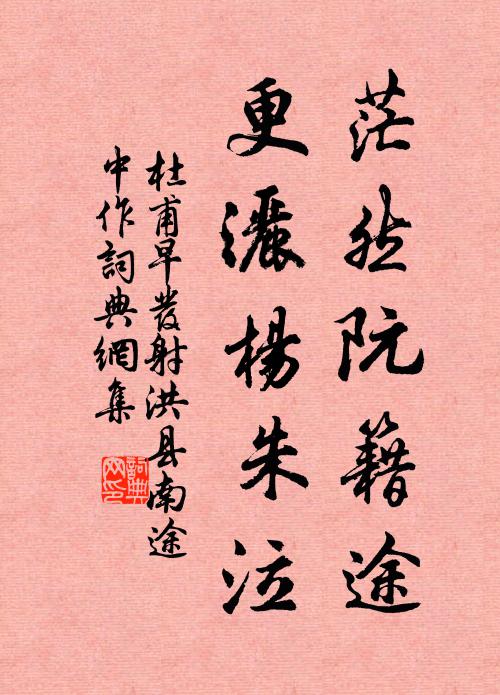 茫然阮籍途
更灑楊朱泣
杜甫早發射洪县南途
中作詞典網集
詞典
网印